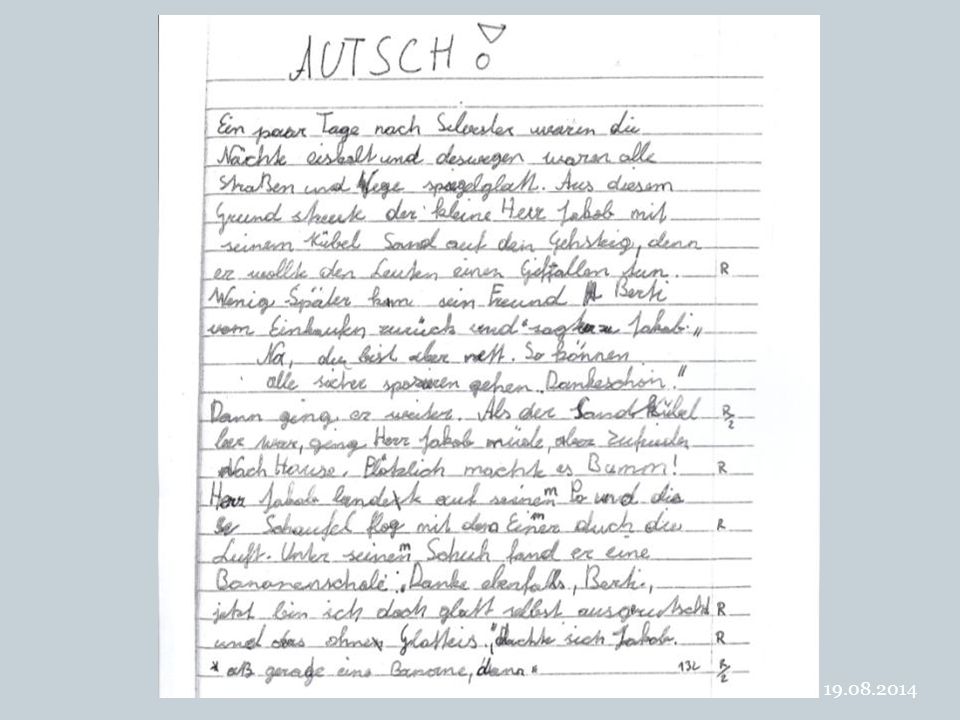 AUTSCH!
Ein paar Tage nach Silvester waren die
Nächte eiskalt und deswegen waren alle
Straßen und Wege spiegelglatt. Aus diesem
Grund streut der kleine Herr Jakob mit
seinem Kübel Sand auf den Gehsteig, denn
er wollte den Leuten einen Gefallen tun. R
Wenig Später kam sein Freund Berti
vom Einkaufen zurück und * sagte zu Jakob: „
Na, du bist aber nett. So können
alle sicher spazieren gehen. Dankeschön."
Dann ging er weiter. Als der Sandkübel R/2
leer war, ging Herr Jakob müde, aber zufrieden
Nach Hause. Plötzlich machte es Bumm! R
Herr Jakob landete auf seinem Po und die
Schaufel flog mit dem Eimer duch die R
Luft. Unter seinem Schuh fand er eine
Bananenschale. „Danke ebenfalls, Berti,
jetzt bin ich doch glatt selbst ausgerutscht R
und das ohne Glatteis.", dachte sich Jakob. R
* aß gerade eine Banane, dann * 132 R/2
19.08.2014